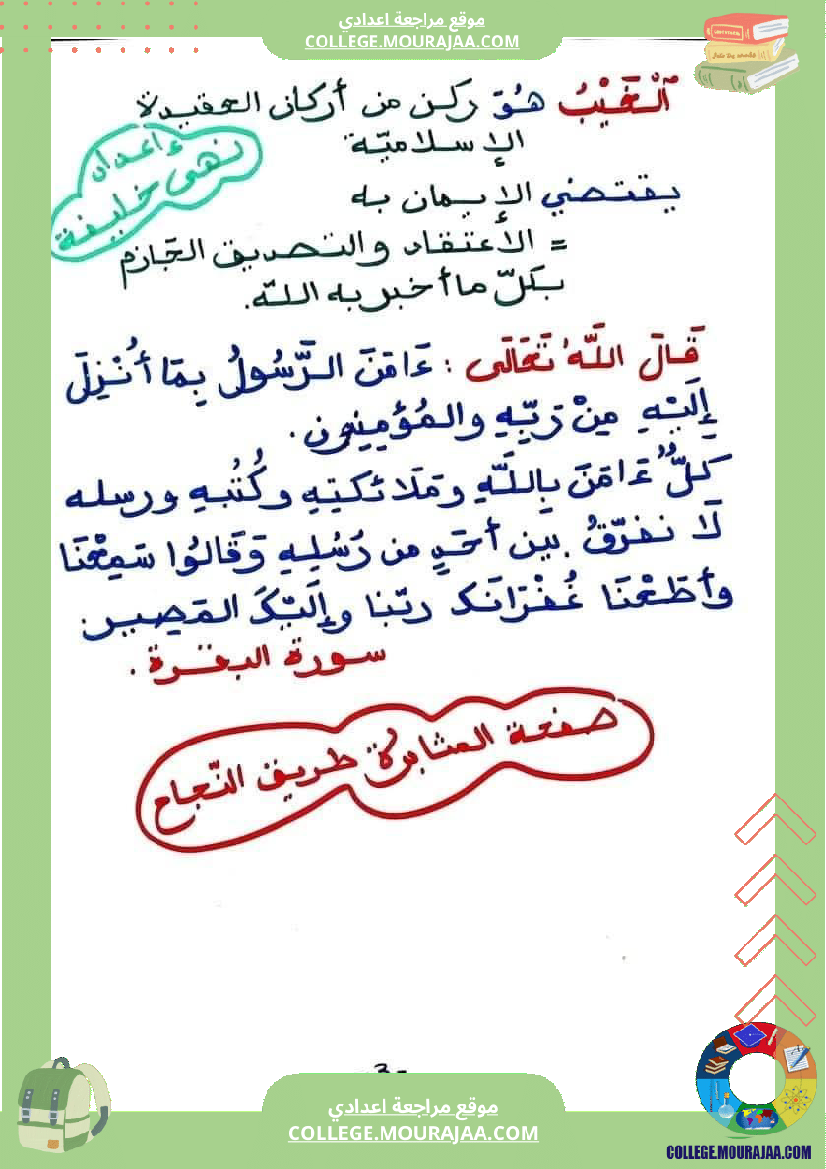 موقع مراجعة اعدادي
COLLEGE.MOURAJAA.COM
الْغَيْبُ هُوَ ركن من أركان العقيدة
الإسلاميّة
إعداد
نهى خليفة
يقتضي الإيمان به
= الاعتقاد والتصديق الجَازم
بكلّ ما أخبر به اللّه.
قَالَ اللَّهُ تَعَالَى : ءَامَنَ الرَّسُولُ بِمَا أُنْزِلَ
إِلَيْهِ مِنْ رَبِّهِ والمُؤْمِنِون.
كُلٌّ ءَامَنَ بِاللَّهِ ومَلَائكتِهِ وكُتُبِهِ ورسله
لَا نفرّقُ بين أحَدٍ من رُسُلِهِ وَقَالُوا سَمِعْنَا
وأطَعْنَا غُفْرَانَك ربّنا وإِلَيْكَ المَصِير.
سورة البقرة.
صفحة المثابرة طريق النّجاح
-3-
موقع مراجعة اعدادي
COLLEGE.MOURAJAA.COM
COLLEGE.MOURAJAA.COM